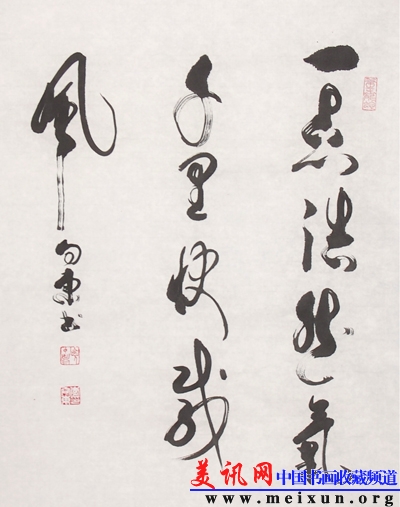 一点浩然氣
千里快哉
風
向东书
美讯网 中国书画收藏频道
www.meixun.org